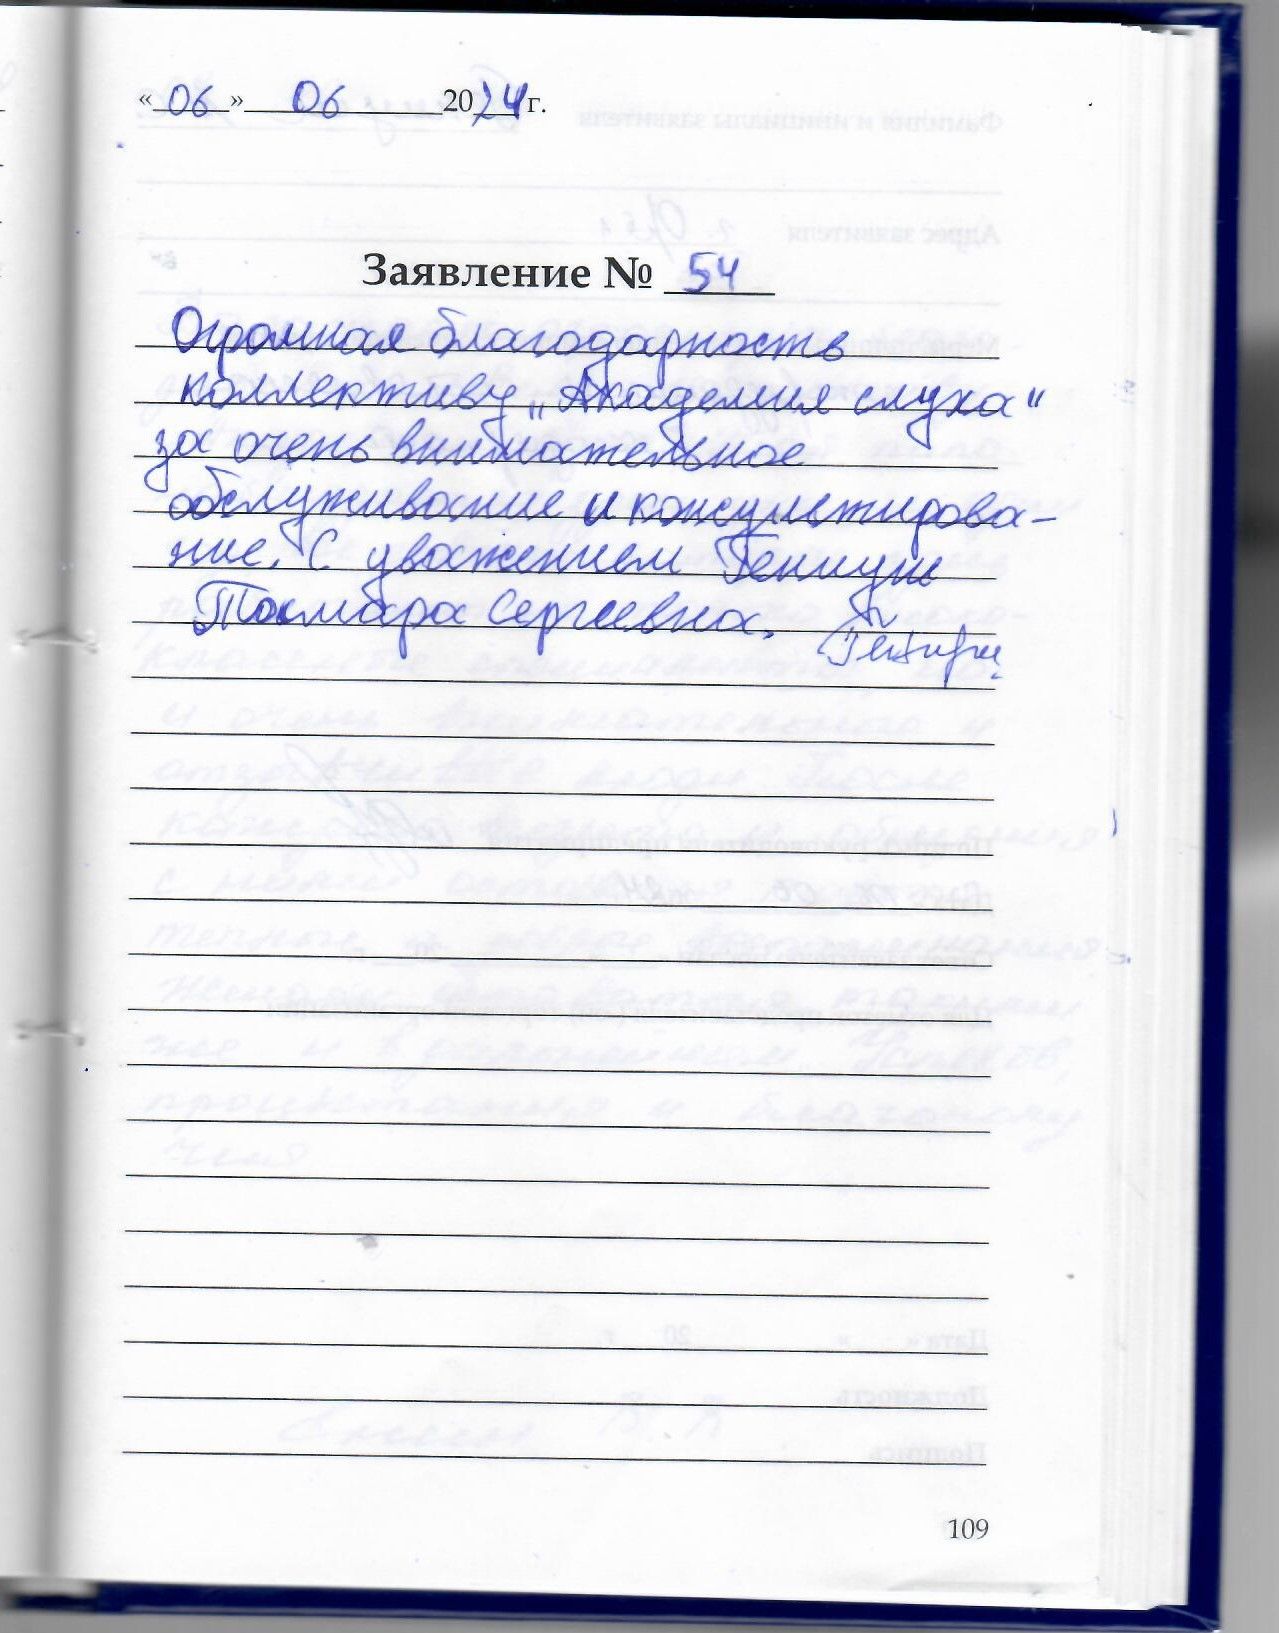 «06» 06 2024 г.
Заявление № 54
Огромная благодарность
коллективу „Академия слуха"
за очень внимательное
обслуживание и консультирова-
ние. С уважением
Тамара Сергеевна.
109